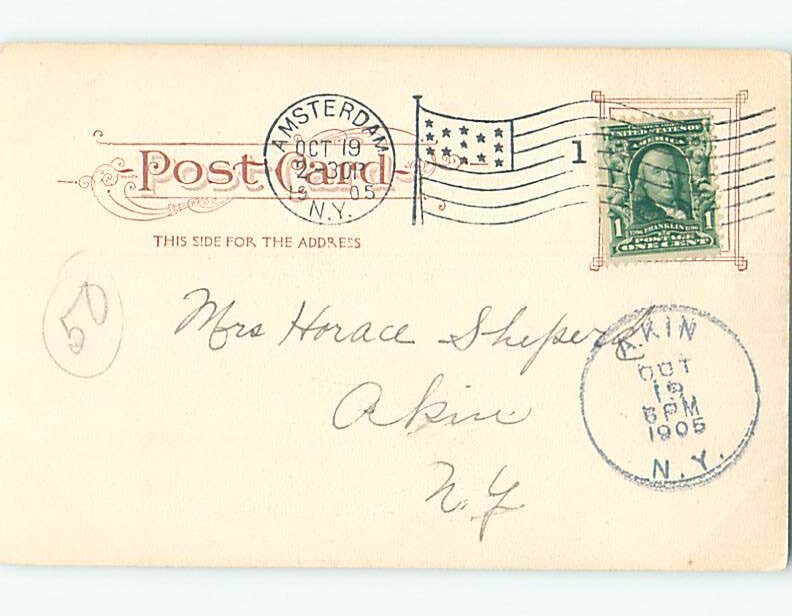 AMSTERDAM
OCT 19
2-30P
19 05
N.Y.
1
UNITED STATES OF
AMERICA
1
1706 FRANKLIN 1790
1
POSTAGE
ONE CENT
Post Card
THIS SIDE FOR THE ADDRESS
50
Mrs Horace Sheperd
Akin
N.Y
AKIN
OCT
19
6PM
1905
N.Y.